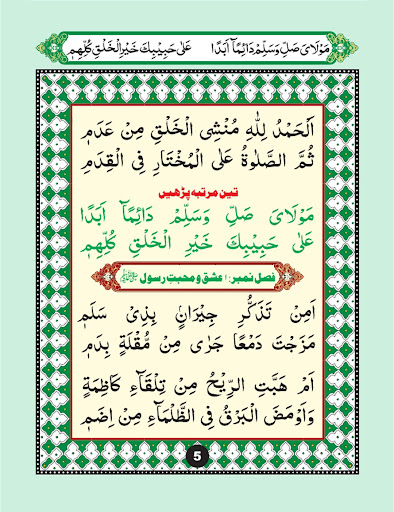 مَوْلَایَ صَلِّ وَسَلِّمْ دَآئِمًا اَبَدًا عَلٰی حَبِیْبِكَ خَیْرِ الْخَلْقِ كُلِّهِمٖ
اَلْحَمْدُ لِلّٰهِ مُنْشِی الْخَلْقِ مِنْ عَدَمٖ
ثُمَّ الصَّلٰوةُ عَلَی الْمُخْتَارِ فِی الْقِدَمِ
تین مرتبہ پڑھیں
مَوْلَایَ صَلِّ وَسَلِّمْ دَآئِمًا اَبَدًا
عَلٰی حَبِیْبِكَ خَیْرِ الْخَلْقِ كُلِّهِمٖ
فصل نمبر:۱ عشق و محبتِ رسول ﷺ
اَمِنْ تَذَكُّرِ جِیْرَانٍ بِذِیْ سَلَمٖ
مَزَجْتَ دَمْعًا جَرٰی مِنْ مُّقْلَةٍ بِدَمٖ
اَمْ هَبَّتِ الرِّیْحُ مِنْ تِلْقَآءِ كَاظِمَةٍ
وَاَوْمَضَ الْبَرْقُ فِی الظَّلْمَآءِ مِنْ اِضَمٖ
5